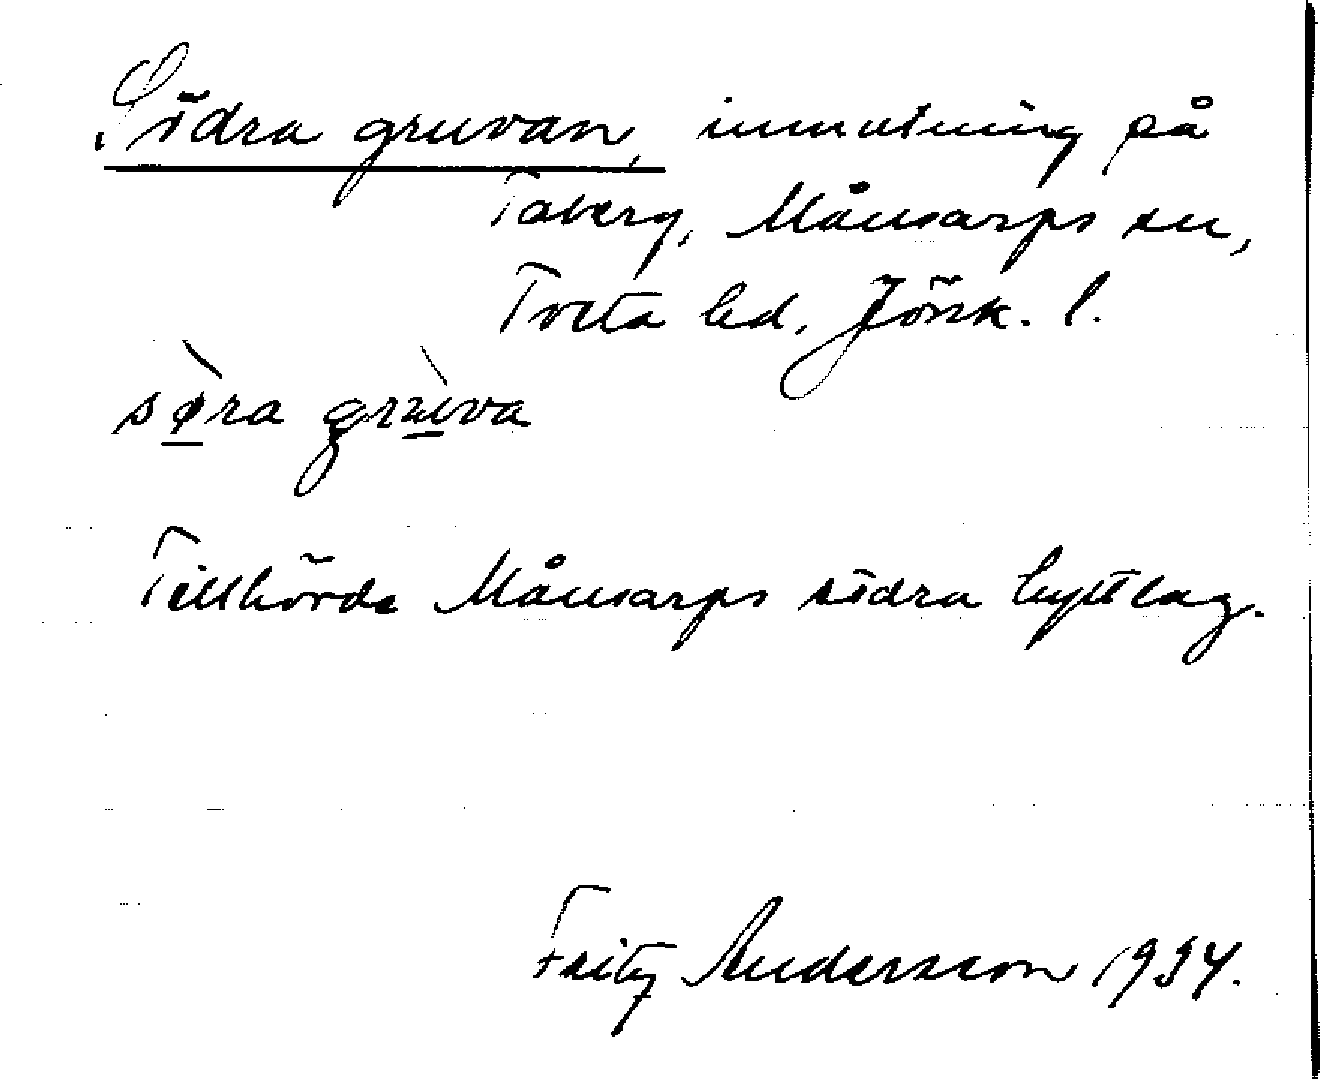 Södra gruvan, inmutning på
Taberg, Månsarps sn,
Tveta hd, Jönk. l.
sø̀ra grùva
Tillhörde Månsarps södra hyttlag.
Fritz Andersson 1934.